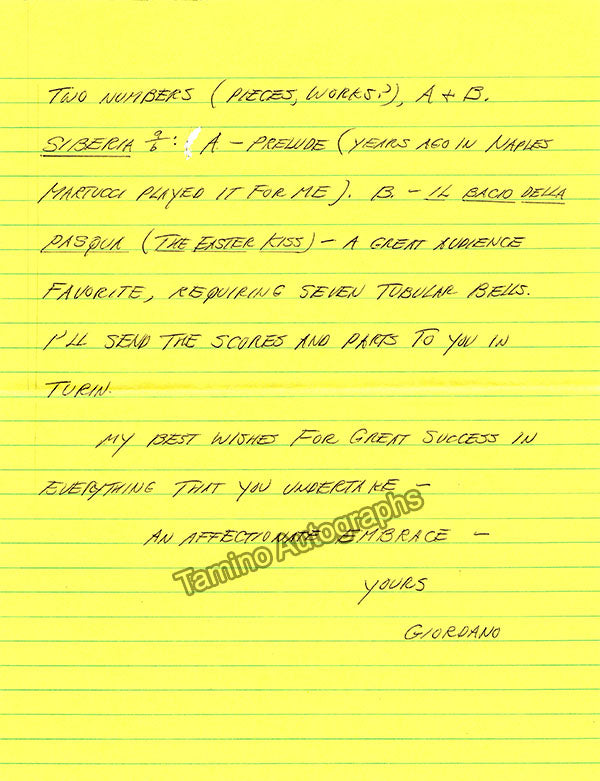 TWO NUMBERS (PIECES, WORKS?), A + B.
SIBERIA a/b: (A – PRELUDE (YEARS AGO IN NAPLES
MARTUCCI PLAYED IT FOR ME). B. – IL BACIO DELLA
PASQUA (THE EASTER KISS) – A GREAT AUDIENCE
FAVORITE, REQUIRING SEVEN TUBULAR BELLS.
I'LL SEND THE SCORES AND PARTS TO YOU IN
TURIN.
MY BEST WISHES FOR GREAT SUCCESS IN
EVERYTHING THAT YOU UNDERTAKE –
AN AFFECTIONATE EMBRACE –
Tamino Autographs
YOURS
GIORDANO